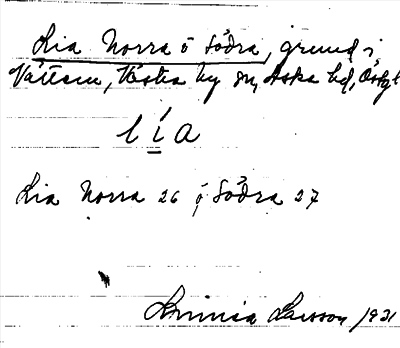 Lia Norra o Södra, grund i
Vättern, Västra Ny sn, Aska hd, Östgl
lía
Lia Norra 26 o Södra 27
Linnea Larsson 1931